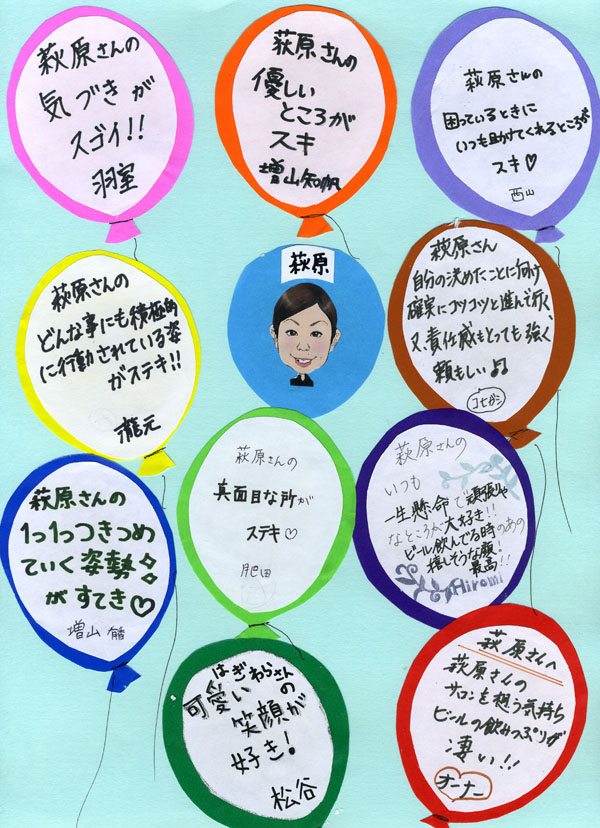 萩原さんの
気づきが
スゴイ!!
羽室
萩原さんの
優しい
ところが
スキ
増山知帆
萩原さんの
困っているときに
いつも助けてくれるところが
スキ♡
西山
萩原さんの
どんな事にも積極的
に行動されている姿
がステキ!!
瀧元
萩原
萩原さん
自分の決めたことに向け
確実にコツコツと進んで行く、
又、責任感もとっても強く
頼もしい♫
コセガシ
萩原さんの
1つ1つつきつめ
ていく姿勢
がすてき♡
増山
萩原さんの
真面目な所が
ステキ♡
肥田
萩原さんの
いつも
一生懸命で頑張りや
なところが大好き!!
ビール飲んでる時のあの
嬉しそうな顔!
最高!!
Hiromi
はぎわらさんの
可愛い
笑顔が
好き!
松谷
萩原さんへ
萩原さんの
サロンを想う気持ち
ビールの飲みっぷりが
凄い!!
オーナー